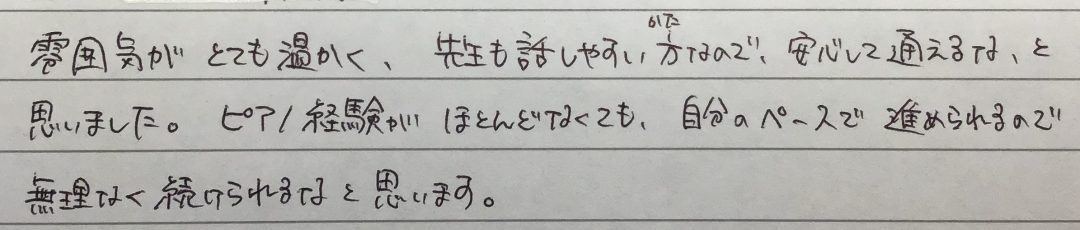 雰囲気が とても温かく、先生も話しやすい方(かた)なので、安心して通えるな、と
思いました。ピアノ経験が ほとんどなくても、自分のペースで 進められるので
無理なく続けられるなと思います。